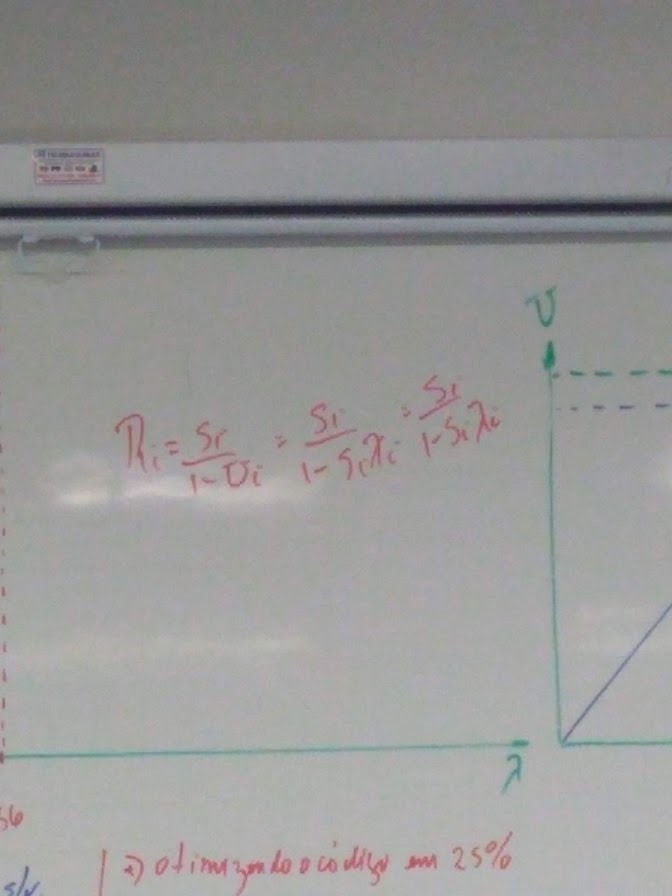 U
Ri = Si/1-Ui = Si/1-Siλi = Si/1-Siλi
λ
56
s/v
1 a) otimizando o código em 25%